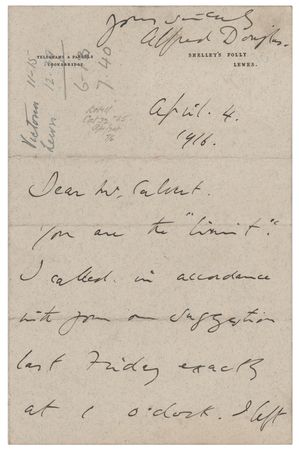 yours sincerely
Alfred Douglas.
TELEGRAMS & PARCELS
COOKSBRIDGE
SHELLEY'S FOLLY
LEWES.
Victoria 11-15
Lewes 12-
6-
7.40
April. 4.
1916.
Dear Mr. Calvert.
You are the "limit".
I called in accordance
with your own suggestion
last Friday exactly
at 1 o'clock. I left